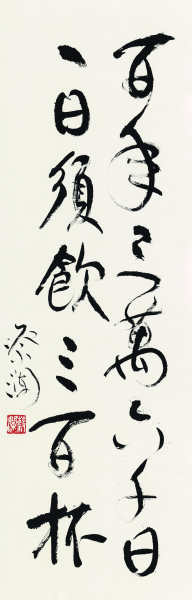 百年三萬六千日
一日須飲三百杯
蔡瀾